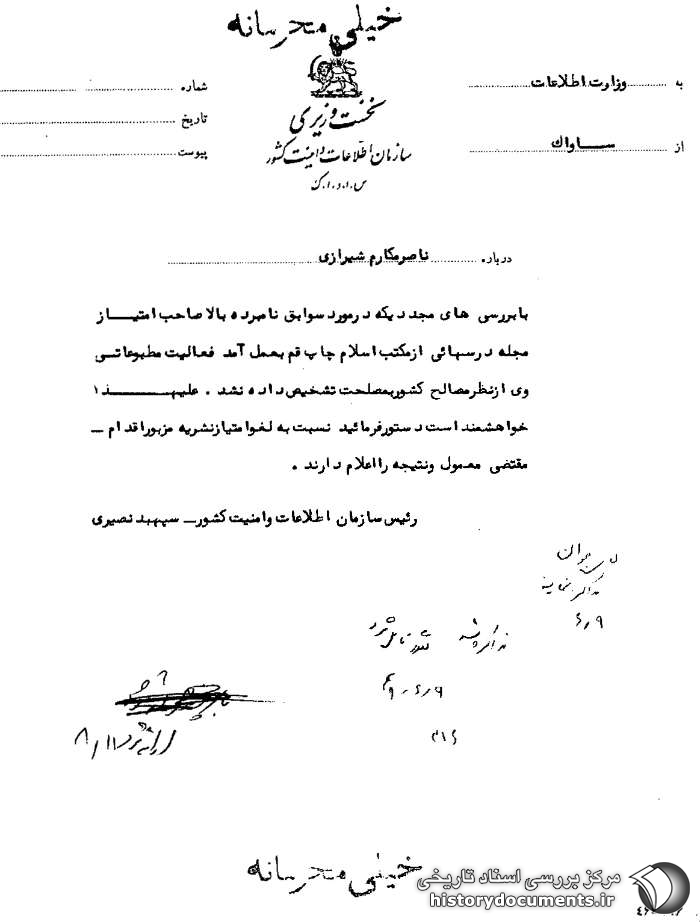 خیلی محرمانه
به وزارت اطلاعات
از ساواك
شماره
تاریخ
پیوست
نخست وزیری
سازمان اطلاعات و امنیت کشور
س.ا.و.ا.ک
درباره ناصرمکارم شیرازی
بابررسی های مجددیکه درمورد سوابق نامبرده بالا صاحب امتیاز
مجله درسهائی ازمکتب اسلام چاپ قم بعمل آمد فعالیت مطبوعاتی
وی ازنظرمصالح کشوربمصلحت تشخیص داده نشد . علیهذا
خواهشمند است دستورفرمائید نسبت به لغوامتیازنشریه مزبوراقدام ــ
مقتضی معمول ونتیجه رااعلام دارند .
رئیس سازمان اطلاعات وامنیت کشور ــ سپهبد نصیری
۶/۹
خیلی محرمانه
مرکز بررسی اسناد تاریخی
historydocuments.ir